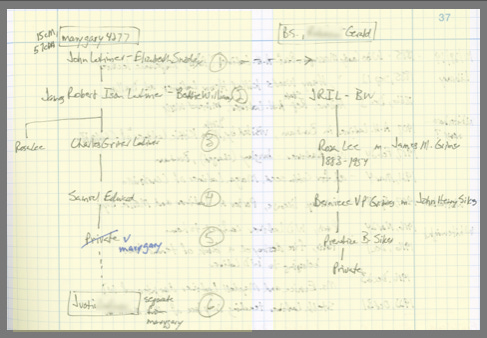 37
15cM,
57cM
marygary4277
B.S., Gerald
John Latimer - Elizabeth
1
Robert Isom Latimer - 2
JRIL - BW
Rosa Lee
Charles Grier Latimer 3
Rosa Lee m. James M. Grimes
1883-1954
Samuel Edward 4
Berniece VP Grimes m. John Henry Sikes
Private v
marygary
5
Prentice B. Sikes
Private
Justi
separate
from
marygary
6